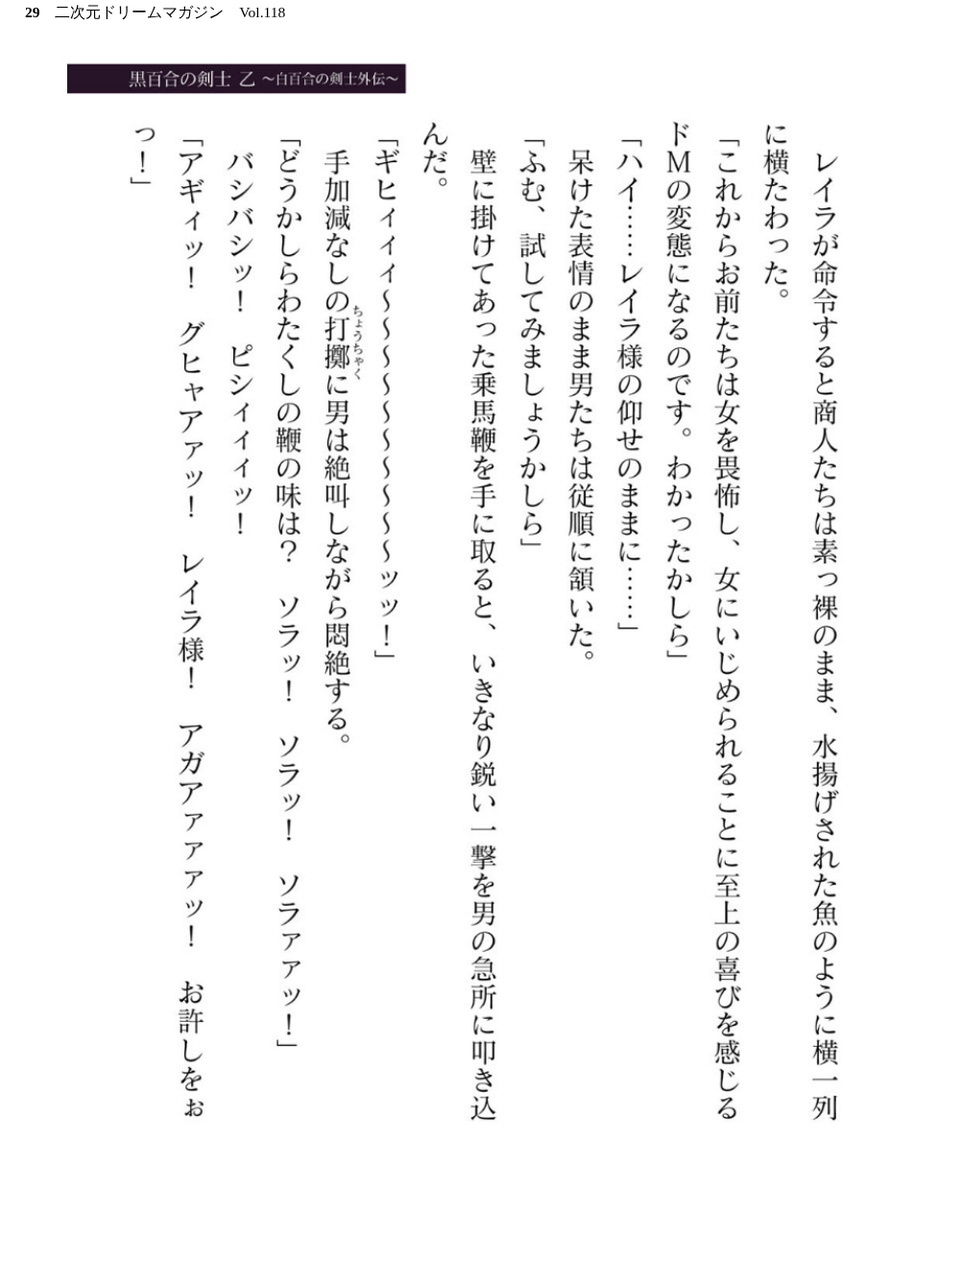 29 二次元ドリームマガジン Vol.118
黒百合の剣士 乙 ～白百合の剣士外伝～
　レイラが命令すると商人たちは素っ裸のまま、水揚げされた魚のように横一列
に横たわった。
「これからお前たちは女を畏怖し、女にいじめられることに至上の喜びを感じる
ドＭの変態になるのです。わかったかしら」
「ハイ……レイラ様の仰せのままに……」
　呆けた表情のまま男たちは従順に頷いた。
「ふむ、試してみましょうかしら」
　壁に掛けてあった乗馬鞭を手に取ると、いきなり鋭い一撃を男の急所に叩き込
んだ。
「ギヒィィィ～～～～～～～～～～ッッ！」
　手加減なしの打擲ちょうちゃくに男は絶叫しながら悶絶する。
「どうかしらわたくしの鞭の味は？　ソラッ！　ソラッ！　ソラァァッ！」
　バシバシッ！　ピシィィィッ！
「アギィッ！　グヒャアァッ！　レイラ様！　アガアァァァッ！　お許しをぉ
っ！」